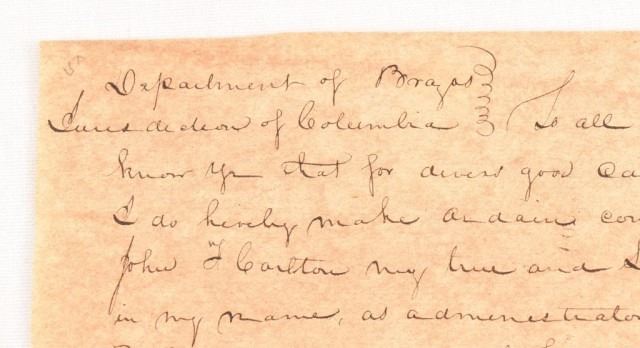 Department of Brazos
Jurisdiction of Columbia To all
know ye that for divers good ca
I do hereby make ordain con
John T Carlton my true and L
in my name, as administrator